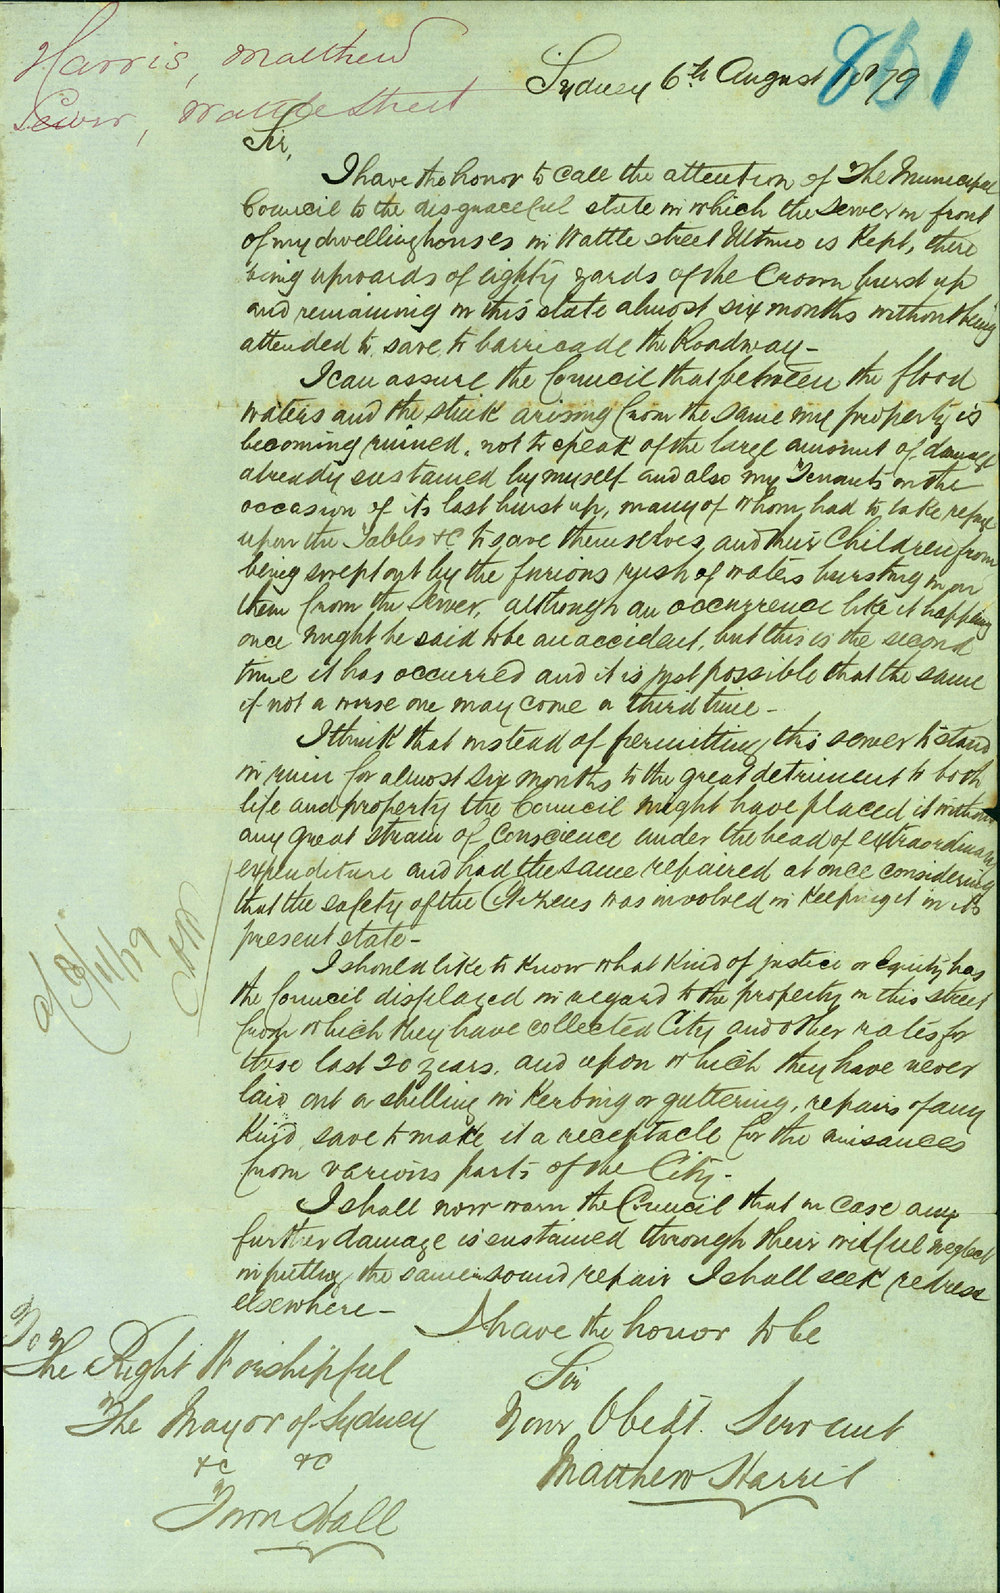 Harris, Matthew
Sewer, Wattle Street
861
Sydney 6th August 1879
Sir,
I have the honor to call the attention of The Municipal
Council to the disgraceful state in which the sewer in front
of my dwelling houses in Wattle street Ultimo is kept, there
being upwards of eighty yards of the Crown burst up
and remaining in this state almost six months without being
attended to, save to barricade the Roadway –
I can assure the Council that between the flood
waters and the stink arising from the same my property is
becoming ruined, not to speak of the large amount of damage
already sustained by myself and also my Tenants on the
occasion of its last burst up, many of whom had to take refuge
upon the Tables &c to save themselves, and their Children from
being swept out by the furious rush of waters bursting in on
them from the Sewer, although an occurrence like it happening
once might be said to be an accident, but this is the second
time it has occurred and it is just possible that the same
if not a worse one may come a third time –
I think that instead of permitting this sewer to stand
in ruin for almost six months to the great detriment to both
life and property the Council might have placed it without
any great strain of Conscience under the head of extraordinary
expenditure and had the same repaired at once considering
that the safety of the Citizens was involved in keeping it in its
present state –
I should like to know what kind of justice or equity has
the Council displayed in regard to the property in this street
from which they have collected City and other rates for
these last 20 years, and upon which they have never
laid out a shilling in Kerbing or guttering, repairs of any
kind, save to make it a receptacle for the nuisances
from various parts of the City –
I shall now warn the Council that in case any
further damage is sustained through their wilful neglect
in putting the same in sound repair I shall seek redress
elsewhere –
I have the honor to be
Sir
Your Obedt. Servant
Matthew Harris
To
The Right Worshipful
The Mayor of Sydney
&c &c
Town Hall